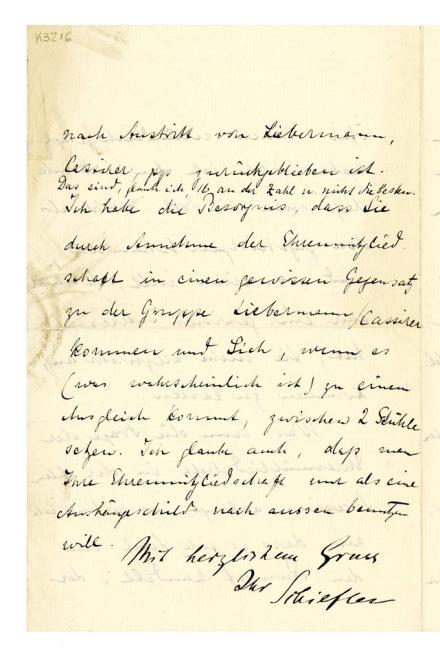 K3216
nach Austritt von Liebermann,
Cassirer pp zurückgeblieben ist.
Das sind, glaub ich, 16 an der Zahl u. nicht die besten.
Ich habe die Besorgnis, dass Sie
durch Annahme der Ehrenmitglied-
schaft in einen gewissen Gegensatz
zu der Gruppe Liebermann/Cassirer
kommen und Sich, wenn es
(was wahrscheinlich ist) zu einem
Ausgleich kommt, zwischen 2 Stühle
setzen. Ich glaube auch, dass man
Ihre Ehrenmitgliedschaft nur als eine
Aushängeschild nach aussen benutzen
will.
Mit herzlichem Gruss
Ihr Schiefler